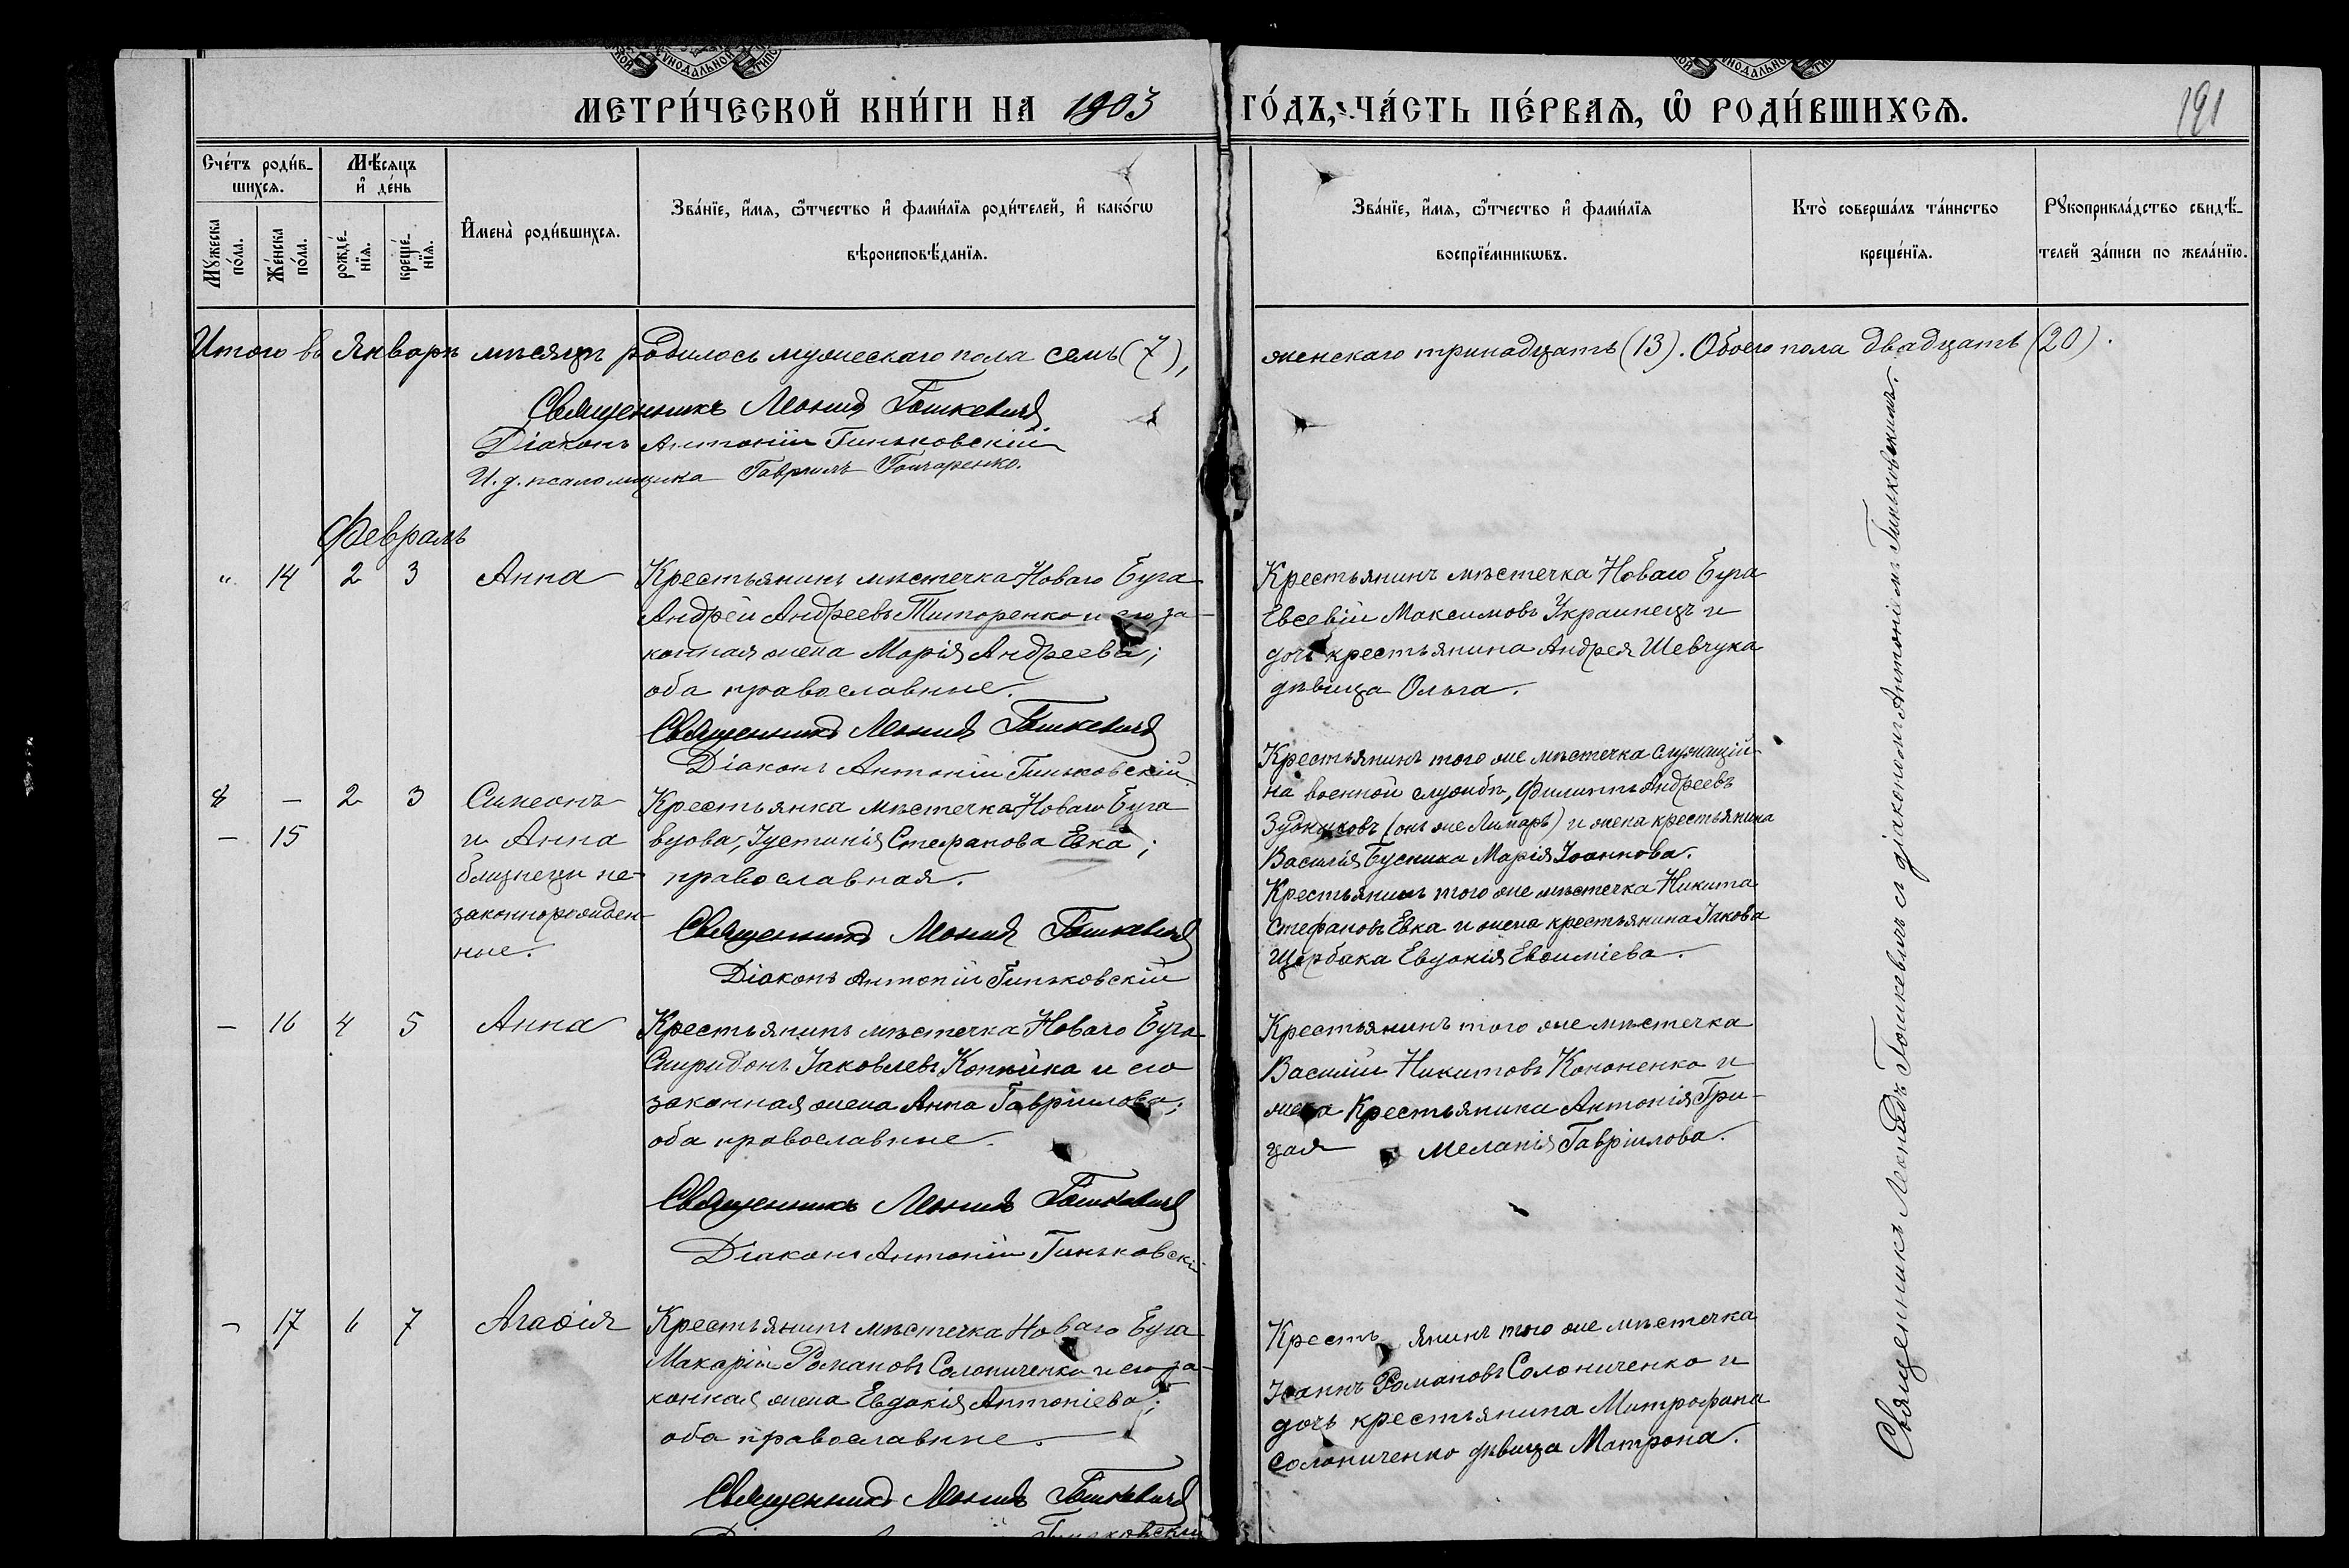 МЕТРИ́ЧЕСКОЙ КНИ́ГИ НА 1903 ГО́ДЪ, ЧА́СТЬ ПЕ́РВАЯ, Ѽ РОДИ́ВШИХСЯ.
191
Сче́тъ роди́в-
шихся.
Мѣ́сяцъ
и҆ де́нь
Мꙋ́жеска
по́ла.
Же́нска
по́ла.
рожде́-
нїя.
креще́-
нїя.
И҆мена̀ роди́вшихся.
Зва́нїе, и҆́мя, ѻ҆́тчество и҆ фами́лїя роди́телей, и҆ како́гѡ
вѣроисповѣ́данїя.
Зва́нїе, и҆́мя, ѻ҆́тчество и҆ фами́лїя
воспрїе́мникѡвъ.
Кто̀ соверша́лъ та́инство
креще́нїя.
Рꙋкоприкла́дство свидѣ́-
телей за́писи по жела́нїю.
Итого въ Январѣ мѣсяцѣ родилось мужескаго пола семь (7), женскаго тринадцать (13). Обоего пола двадцать (20).
Священникъ Леонид Гошкевичъ
Діаконъ Антоній Гиньковскій
И. д. псаломщика Гавріилъ Гончаренко.
Февраль
" 14 2 3 Анна
Крестьянинъ мѣстечка Новаго Буга
Андрей Андреевъ Титоренко и его за-
конная жена Марія Андреева;
оба православные.
Священникъ Леонид Гошкевичъ
Діаконъ Антоній Гиньковскій
Крестьянинъ мѣстечка Новаго Буга
Евсевій Максимовъ Украинецъ и
дочь крестьянина Андрея Шевчука
дѣвица Ольга.
8 — 2 3 Симеонъ
— 15 и Анна
близнецы не-
законнорожден-
ные.
Крестьянка мѣстечка Новаго Буга
вдова, Іустинія Стефанова Евка;
православная.
Священникъ Леонид Гошкевичъ
Діаконъ Антоній Гиньковскій
Крестьянинъ того же мѣстечка служащій
на военной службѣ, Филиппъ Андреевъ
(онъ же Лимарь) и жена крестьянина
Василія Бусника Марія Іоаннова.
Крестьянинъ того же мѣстечка Никита
Стефановъ Евка и жена крестьянина Іакова
Щербака Евдокія Евѳиміева.
— 16 4 5 Анна
Крестьянинъ мѣстечка Новаго Буга
Спиридонъ Іаковлевъ Копѣйка и его
законная жена Анна Гавріилова;
оба православные.
Священникъ Леонид Гошкевичъ
Діаконъ Антоній Гиньковскій
Крестьянинъ того же мѣстечка
Василій Никитовъ Кононенко и
жена Крестьянина Антонія Гри-
цая Меланія Гавріилова.
— 17 6 7 Агаѳія
Крестьянинъ мѣстечка Новаго Буга
Макарій Романовъ Солониченко и его за-
конная жена Евдокія Антоніева;
оба православные.
Священникъ Леонид Гошкевичъ
Гиньковскій
Крестьянинъ того же мѣстечка
Іоаннъ Романовъ Солониченко и
дочь крестьянина Митрофана
Солониченко дѣвица Матрона.
Священникъ Леонидъ Гошкевичъ съ діакономъ Антоніемъ Гиньковскимъ.